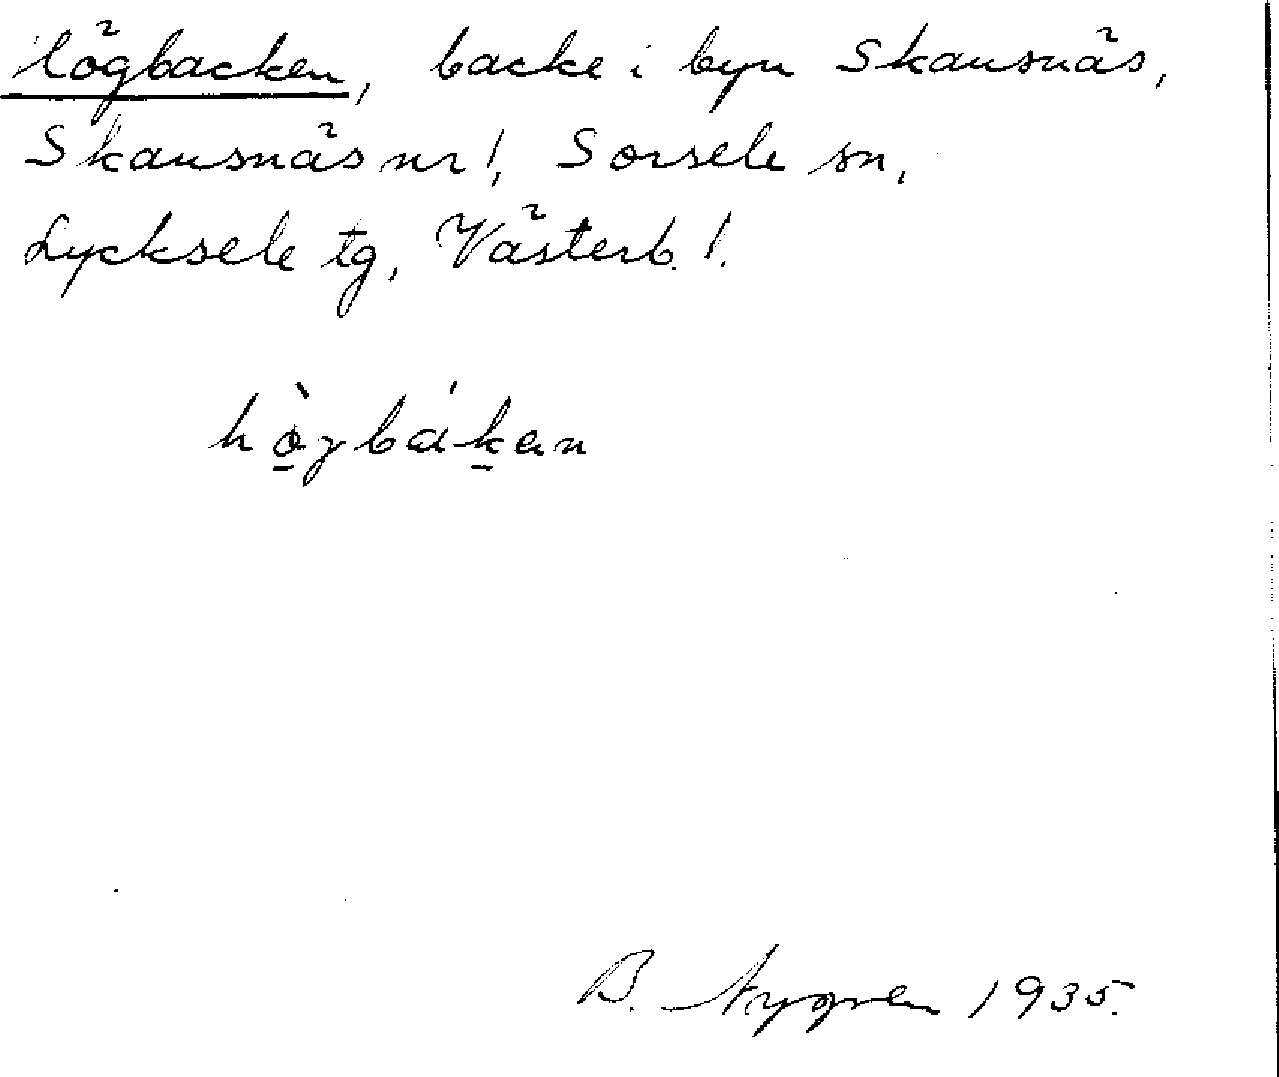 Högbacken, backe i byn Skansnäs,
Skansnäs nr 1, Sorsele sn,
Lycksele tg, Västerb. l.
hò̠gbák̠en
B. Nygren 1935.